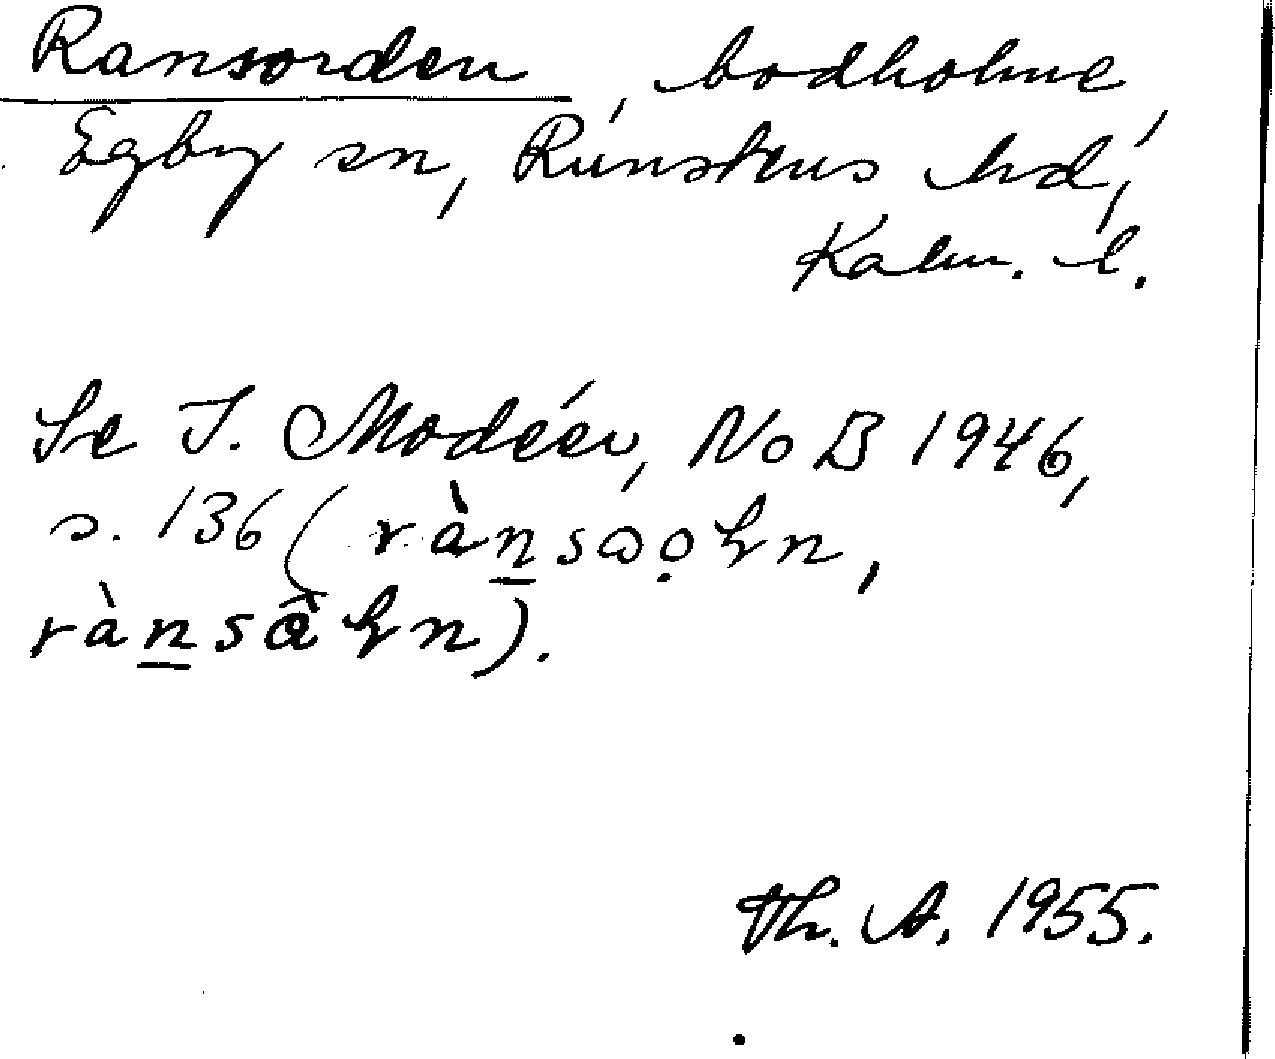 Ransorden, bodholme,
Egby sn, Runstens hd,
Kalm. l.
Se I. Modéer, NoB 1946,
s. 136 (
).
Th. A. 1955.